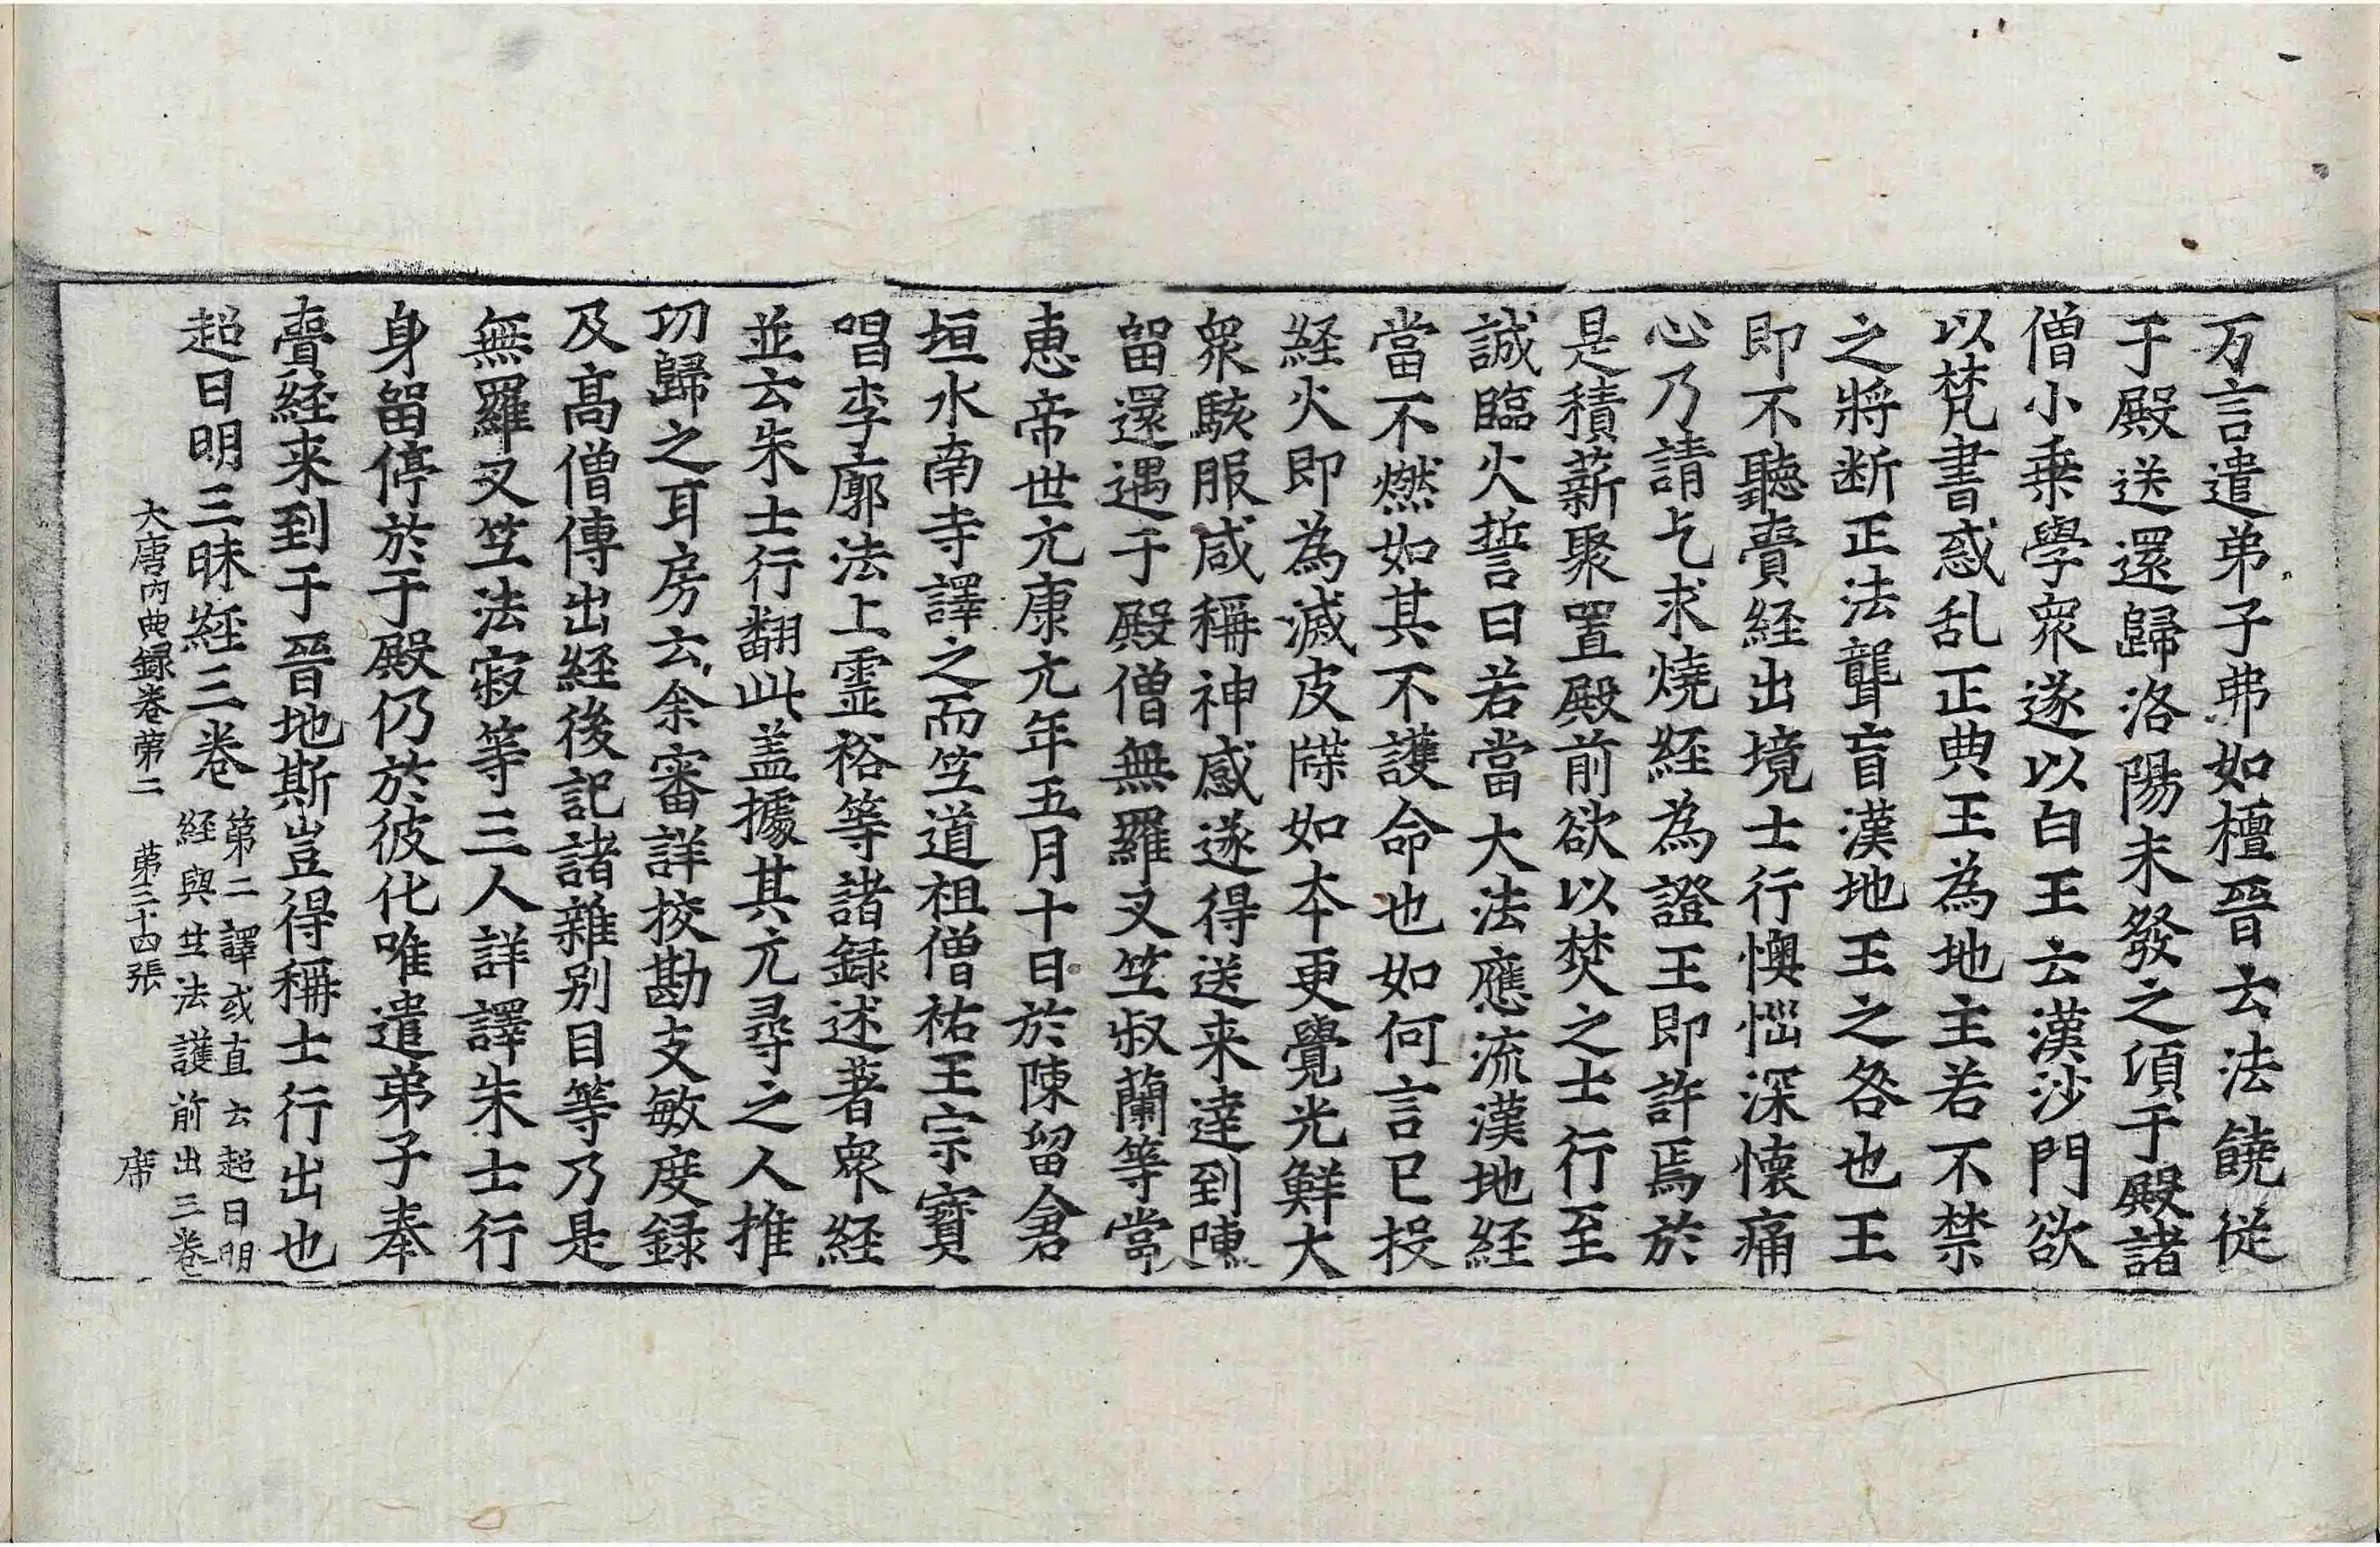 万言遣弟子弗如檀晉云法饒從
于殿送還歸洛陽未發之頃于殿諸
僧小乗學衆遂以白王云漢沙門欲
以梵書惑乱正典王為地主若不禁
之將断正法聾盲漢地王之咎也王
即不聽賫経出境士行懊惱深懷痛
心乃請乞求燒経為證王即許焉於
是積薪聚置殿前欲以焚之士行至
誠臨火誓曰若當大法應流漢地経
當不燃如其不護命也如何言已投
経火即為滅皮牒如夲更覺光鮮大
衆駭服咸稱神感遂得送来達到陳
留還遇于殿僧無羅叉笁叔蘭等當
恵帝世元康元年五月十日於陳留倉
垣水南寺譯之而笁道祖僧祐王宗寶
唱李廓法上霊裕等諸録述著衆経
並云朱士行翻此盖據其元尋之人推
功歸之耳房云余審詳挍勘支敏度録
及高僧傳出経後記諸雜别目等乃是
無羅叉笁法寂等三人詳譯朱士行
身留停於于殿仍於彼化唯遣弟子奉
賫経来到于晉地斯豈得稱士行出也
超日明三昧経三巻
第二譯或直云超日明
経與笁法護前出三巻
大唐内典録巻第二 第三十四張 席